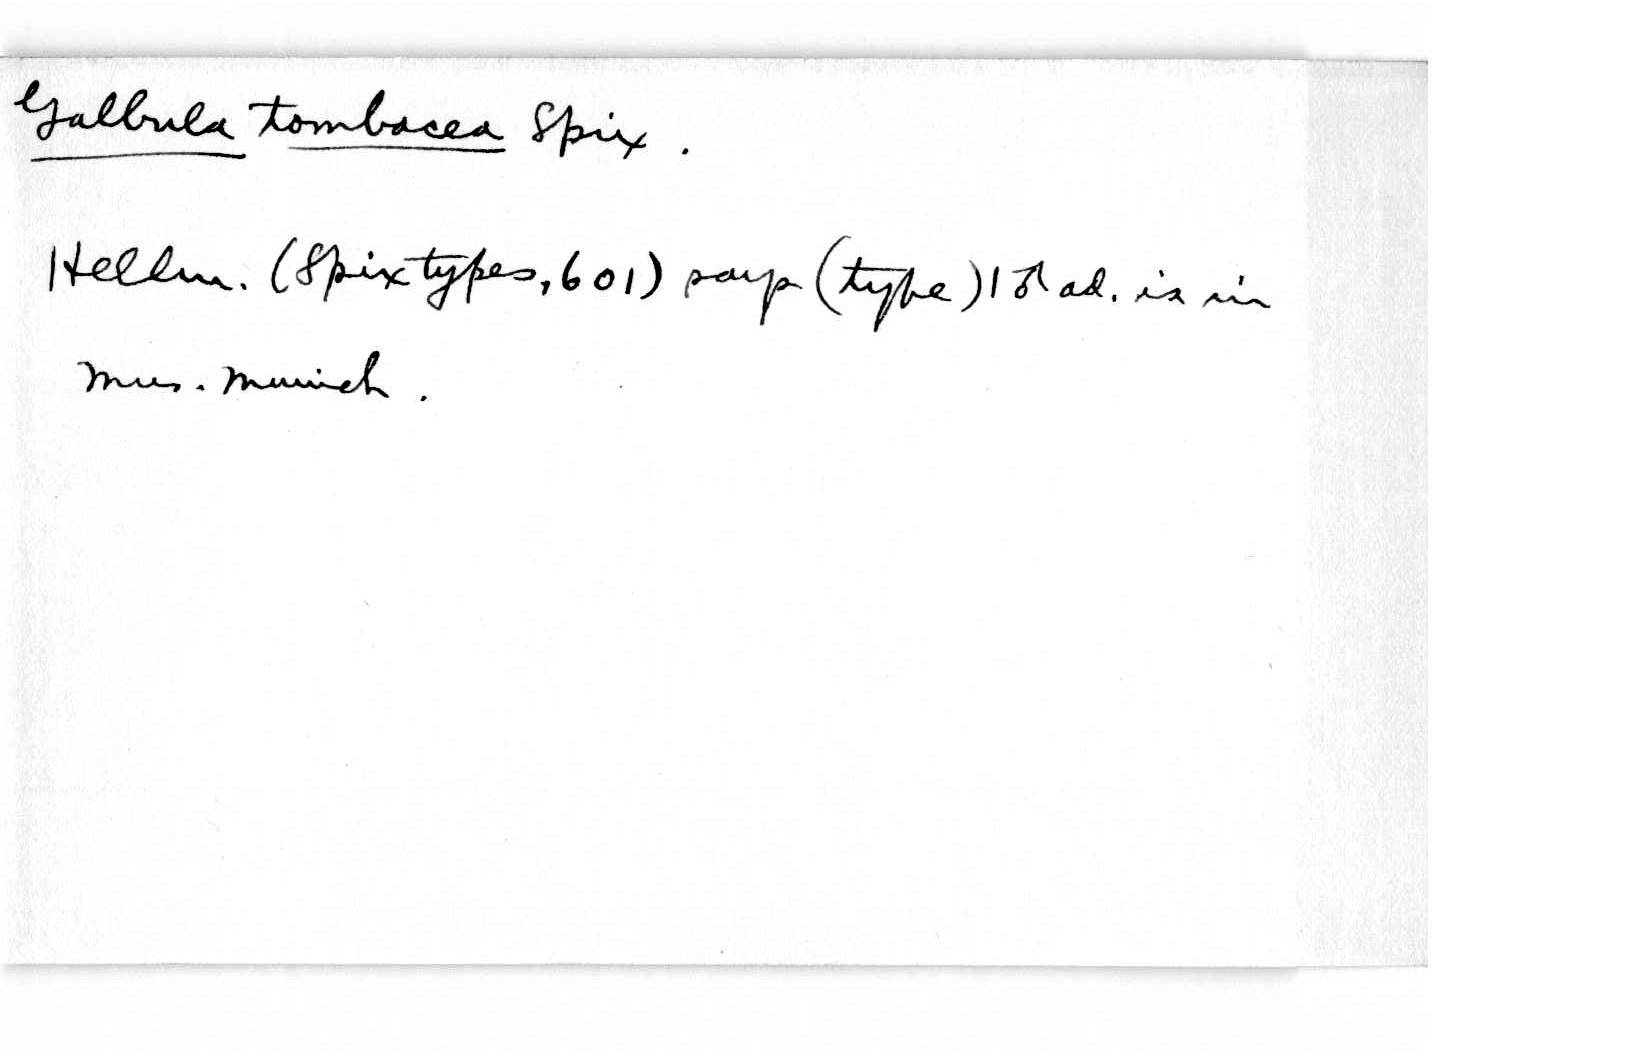 Galbula tombacea Spix.
Hellm. (Spix types, 601) says (type) 1 ♂ ad. is in
Mus. Munich.